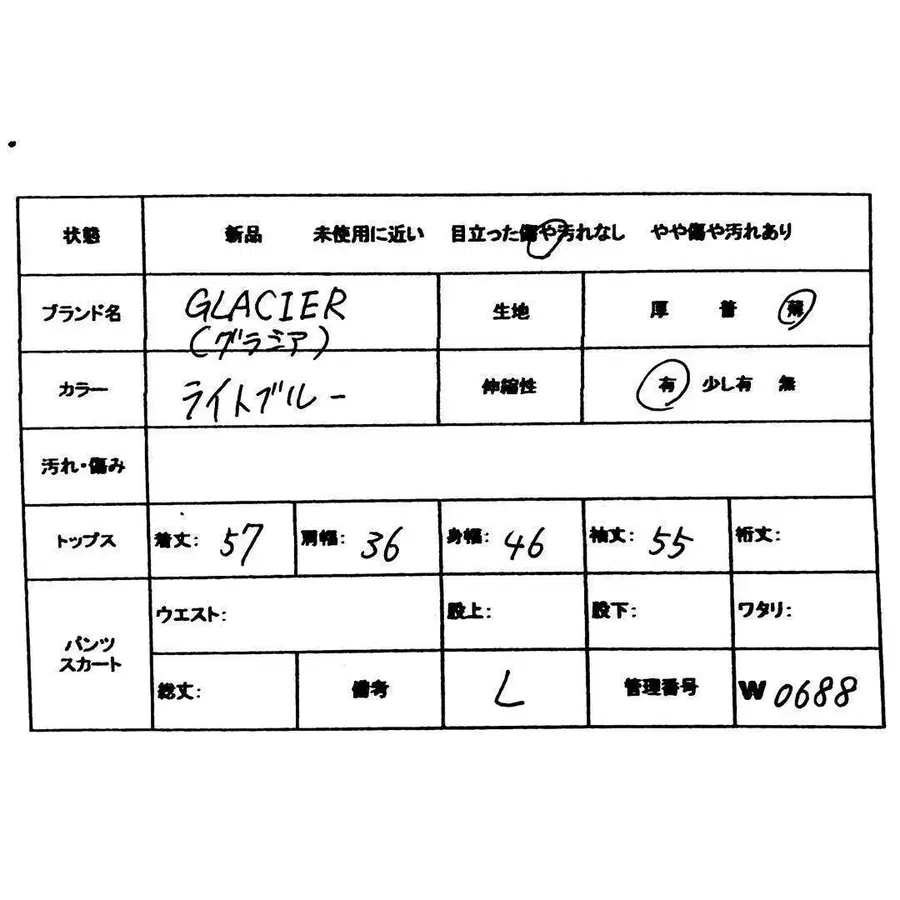 状態 新品 未使用に近い 目立った傷や汚れなし やや傷や汚れあり
ブランド名 GLACIER 生地 厚 普 薄
(グラシア)
カラー ライトブルー 伸縮性 有 少し有 無
汚れ・傷み
トップス 着丈: 57 肩幅: 36 身幅: 46 袖丈: 55 裄丈:
パンツ
スカート
ウエスト: 股上: 股下: ワタリ:
総丈: 備考 L 管理番号 W 0688